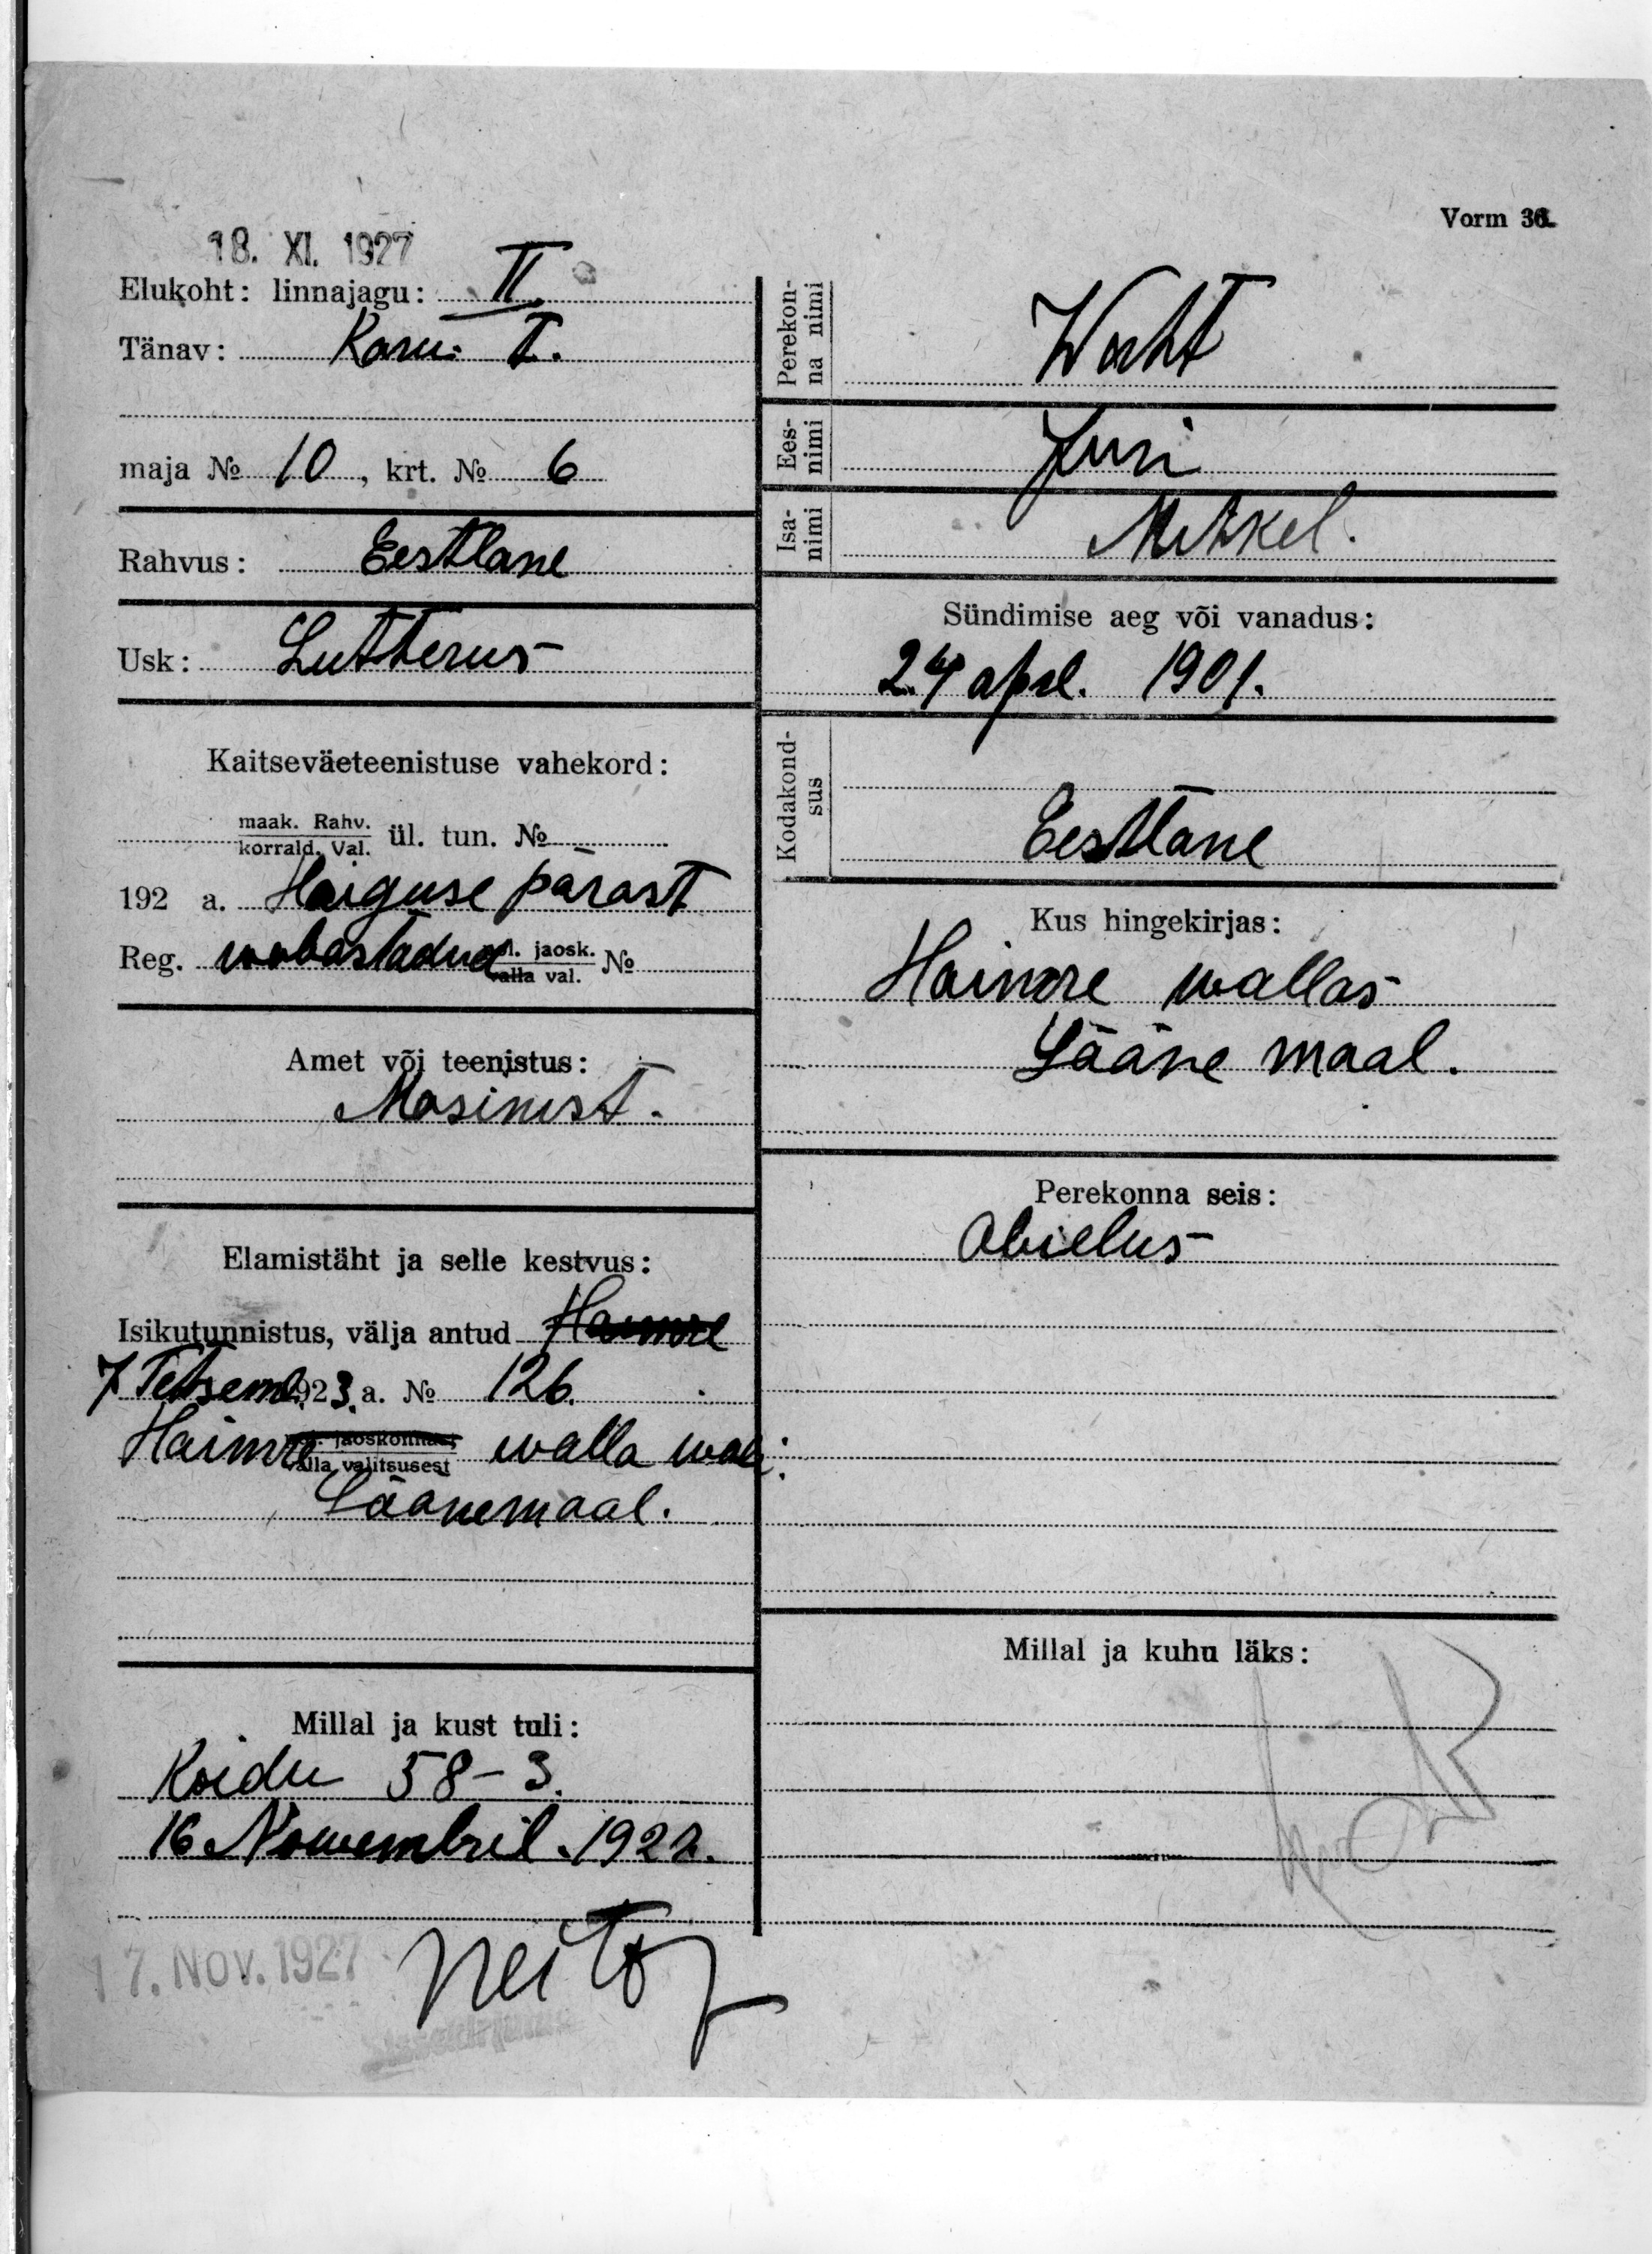 Vorm 36.
18. XI. 1927
Elukoht: linnajagu: II
Tänav: Karu T.
maja № 10, krt. № 6
Rahvus: Eestlane
Usk: Lutterus
Kaitseväeteenistuse vahekord:
maak. Rahv.
korrald. Val. ül. tun. №
192 a. Haiguse pärast
Reg. wabastadud jaosk.
valla val. №
Amet või teenistus:
Masinist.
Elamistäht ja selle kestvus:
Isikutunnistus, välja antud
7 Tetsemb. 1923. a. № 126.
Haimre jaoskonnast walla wal:
valla valitsusest
Läänemaal.
Millal ja kust tuli:
Koidu 58-3.
16 Nowembril. 1927.
17. NOV. 1927
Perekonna nimi
Waht
Eesnimi
Juri
Isanimi
Mihkel.
Sündimise aeg või vanadus:
24 aprl. 1901.
Kodakondsus
Eestlane
Kus hingekirjas:
Haimre wallas
Lääne maal.
Perekonna seis:
Abielus
Millal ja kuhu läks: